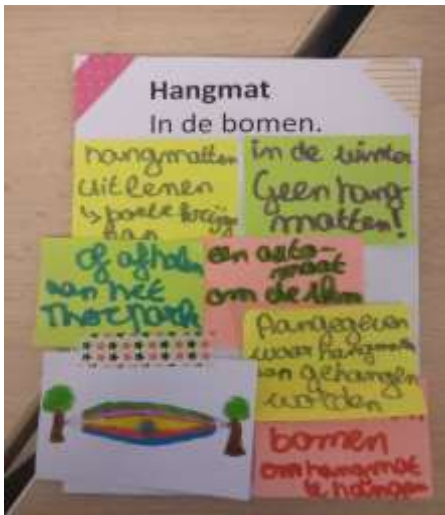 Hangmat
In de bomen.
hangmatten
uitlenen
in de winter
Geen hang-
matten!
of afhalen
aan het
Thorpark
een auto-
maat
om de
Aangegeven
waar hangmatten
gehangen
worden
bomen
om hangmat
te hangen